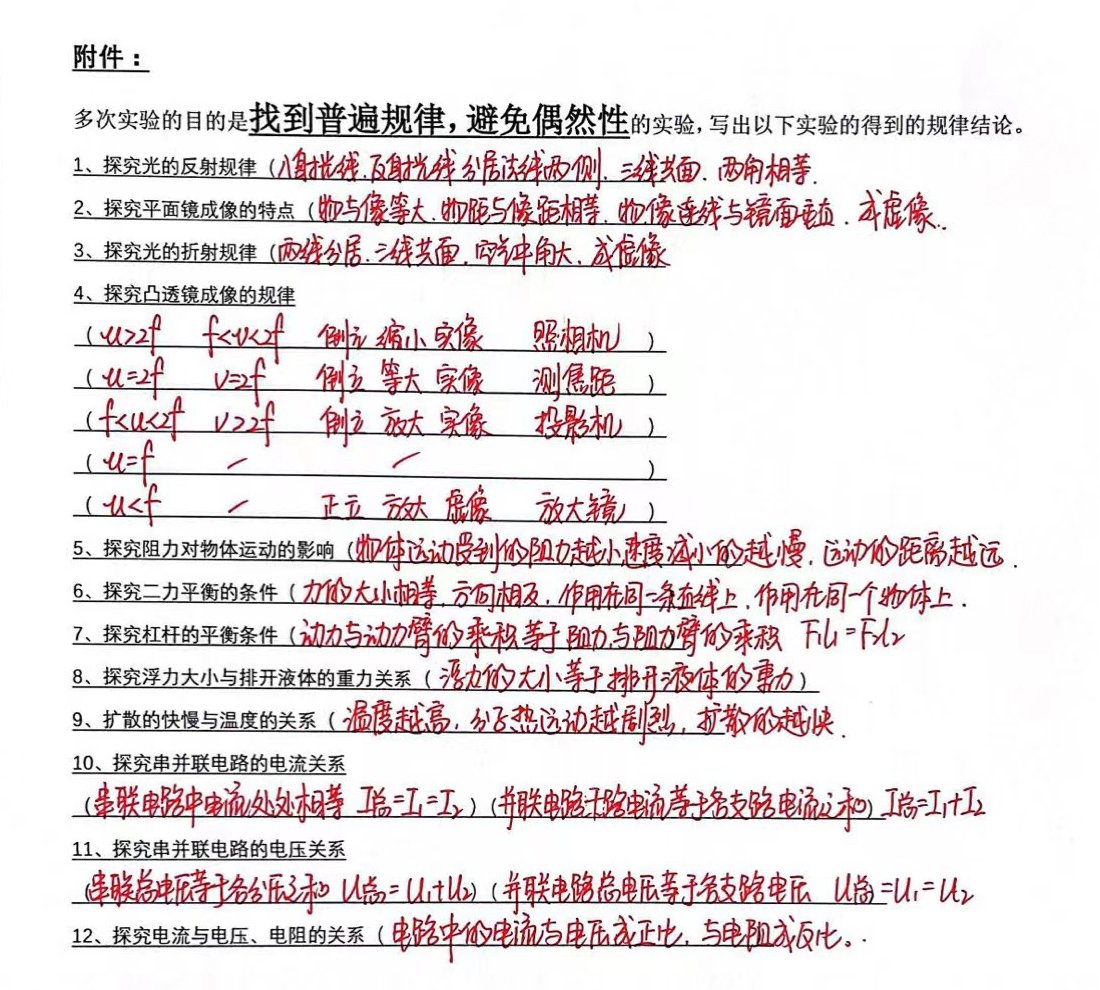 附件：
多次实验的目的是找到普遍规律，避免偶然性的实验，写出以下实验的得到的规律结论。
1、探究光的反射规律（入射光线.反射光线分居法线两侧.三线共面.两角相等.
2、探究平面镜成像的特点（物与像等大.物距与像距相等.物像连线与镜面垂直.成虚像.
3、探究光的折射规律（两线分居.三线共面.空气中角大.成虚像
4、探究凸透镜成像的规律
（u>2f f<v<2f 倒立 缩小 实像 照相机）
（u=2f v=2f 倒立 等大 实像 测焦距）
（f<u<2f v>2f 倒立 放大 实像 投影机）
（u=f — —）
（u<f — 正立 放大 虚像 放大镜）
5、探究阻力对物体运动的影响（物体运动受到的阻力越小速度减小的越慢，运动的距离越远.
6、探究二力平衡的条件（力的大小相等，方向相反，作用在同一条直线上，作用在同一个物体上.
7、探究杠杆的平衡条件（动力与动力臂的乘积等于阻力与阻力臂的乘积 F₁l₁=F₂l₂
8、探究浮力大小与排开液体的重力关系（浮力的大小等于排开液体的重力）
9、扩散的快慢与温度的关系（温度越高，分子热运动越剧烈，扩散的越快.
10、探究串并联电路的电流关系
（串联电路中电流处处相等 I总=I₁=I₂）（并联电路干路电流等于各支路电流之和）I总=I₁+I₂
11、探究串并联电路的电压关系
（串联总电压等于各分压之和 U总=U₁+U₂）（并联电路总电压等于各支路电压 U总）=U₁=U₂
12、探究电流与电压、电阻的关系（电路中的电流与电压成正比，与电阻成反比。.